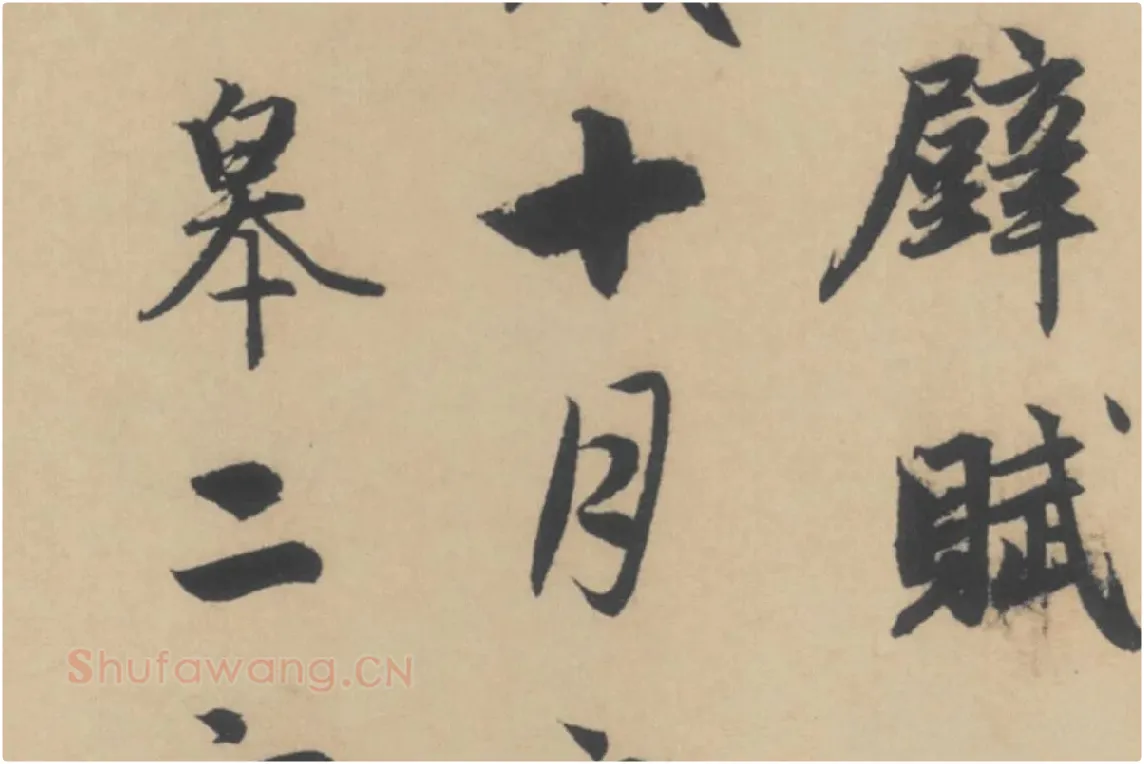 壁賦
十月
皋二
Shufawang.CN